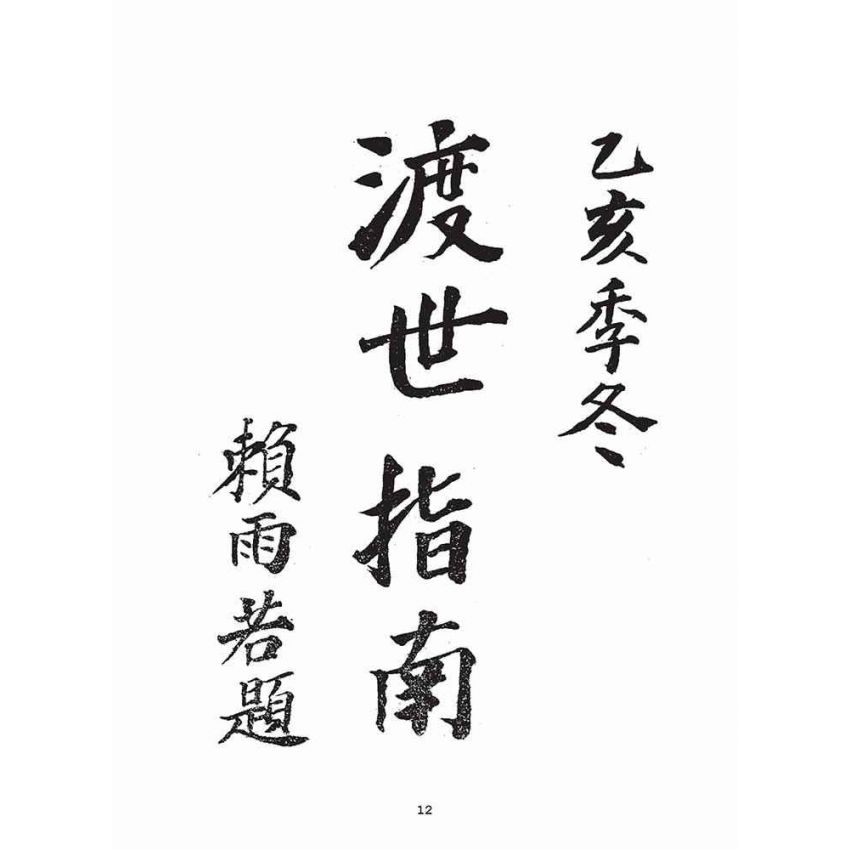 乙亥季冬
渡世指南
賴雨若題
12